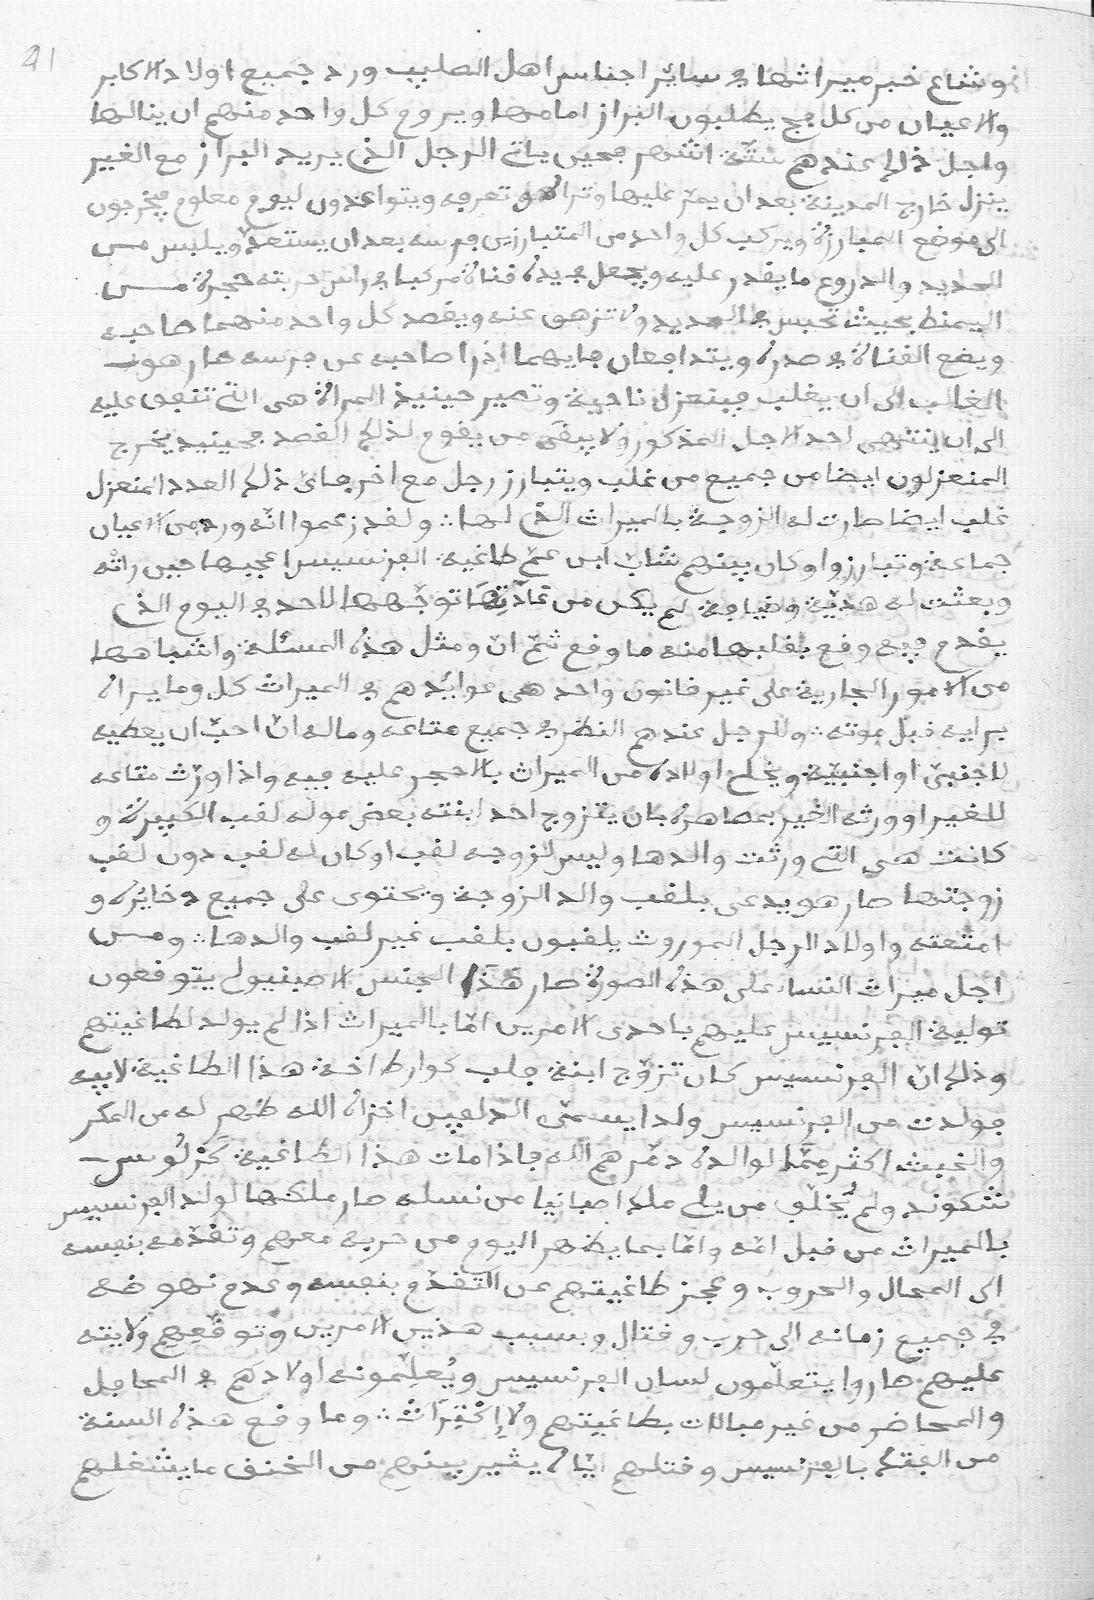 41
وشاع خبر ميراثها في ساير اجناس اهل الصليب ورد جميع اولاد الاكابر
والاعيان من كل فج يطلبون البراز امامها ويروم كل واحد منهم ان ينالها
واجل ذلك عندهم ستّة اشهر فحين ياتي الرجل الذي يريد البراز مع الغير
ينزل خارج المدينة بعد ان يمرّ عليها وتراه وتعرفه ويتواعدون ليوم معلوم فيخرجون
الى موضع المبارزة ويركب كل واحد من المتبارزين فرسه بعد ان يستعدّ ويلبس من
الحديد والدروع ما يقدر عليه ويجعل في يده قناة مركبا في راس حربته حجرة من
اليمنط بحيث تحبس في الحديد ولا تزهق عنه ويقصد كل واحد منهما صاحبه
ويضع القناة في صدره ويتدافعان فايهما اذرا صاحبه عن فرسه صار هو
الغالب الى ان يغلب فينعزل ناحية وتصير حينيذ المراة هي التي تنفق عليه
الى ان ينتهي احد الاجل المذكور ولا يبقى من يقوم لذلك القصد فحينيذ يخرج
المنعزلون ايضا من جميع من غلب ويتبارز رجل مع اخر فاي ذلك العدد المنعزل
غلب ايضا صارت له الزوجة بالميراث الذي لها ولقد زعموا انّه ورد من الاعيان
جماعة وتبارزوا وكان بينهم شابّ ابن عمّ طاغية الفرنسيس اعجبها حين راته
وبعثت له هديّة وضيافة لم يكن من عادتها توجّهها لاحد في اليوم الذي
يقدم فيه وقع بقلبها منه ما وقع ثمّ انّ ومثل هذه المسئلة واشباهها
من الامور الجارية على غير قانون واحد هي عوايدهم في الميراث كل وما يراه
برايه قبل موته وللرجل عندهم النظر في جميع متاعه وماله انّ احبّ ان يعطيه
لاجنبيّ او اجنبيّة ويخلع اولاده من الميراث بلا حجر عليه فيه واذا ورّث متاعه
للغير او ورثه الغير بمصاهرة بان يتزوج احد ابنته بعض موله لقب الكبيرة و
كانت هي التي ورثت والدها وليس لزوجه لقب او كان له لقب دون لقب
زوجتها صار هو يدعى بلقب والد الزوجة وتحتوى على جميع دخايره و
امتعته واولاد الرجل الموروث يلقبون بلقب غير لقب والدها ومن
اجل ميراث النسا على هذه الصورة صار هذا الجنس الاصبنيول يتوقعون
تولية الفرنسيس عليهم باحدى الامرين امّا بالميراث اذا لم يولد لطاغيتهم
وذلك انّ الفرنسيس كان تزوّج ابنة فلب كوارط اخة هذا الطاغية لابيه
فولدت من الفرنسيس ولدا يسمّى الدلفين اخزاه الله ظهر له من المكر
والخبث اكثر ممّا لوالده دمّرهم الله فاذا مات هذا الطاغية كَرْلُوس
شكوند ولم يُخلّف من يلي ملك اصبانيا من نسله صار ملكها لولد الفرنسيس
بالميراث من قبل امّه وامّا بما يظهر اليوم من حربه معهم وتقدّمه بنفسه
الى المحال والحروب وعجز طاغيتهم عن التقدّم بنفسه وعدم نهوضه
في جميع زمانه الى حرب وقتال وبسبب هذين الامرين وتوقّعهم ولايته
عليهم صاروا يتعلّمون لسان الفرنسيس ويُعلِّمونه اولادهم في المحافل
والمحاضر من غير مبالات بطاغيتهم ولا إِكْتِرَاثْ وما وقع هذه السنة
من الفتك بالفرنسيس وقتلهم ايّاه يثير بينهم من الخنق ما يشغلهم